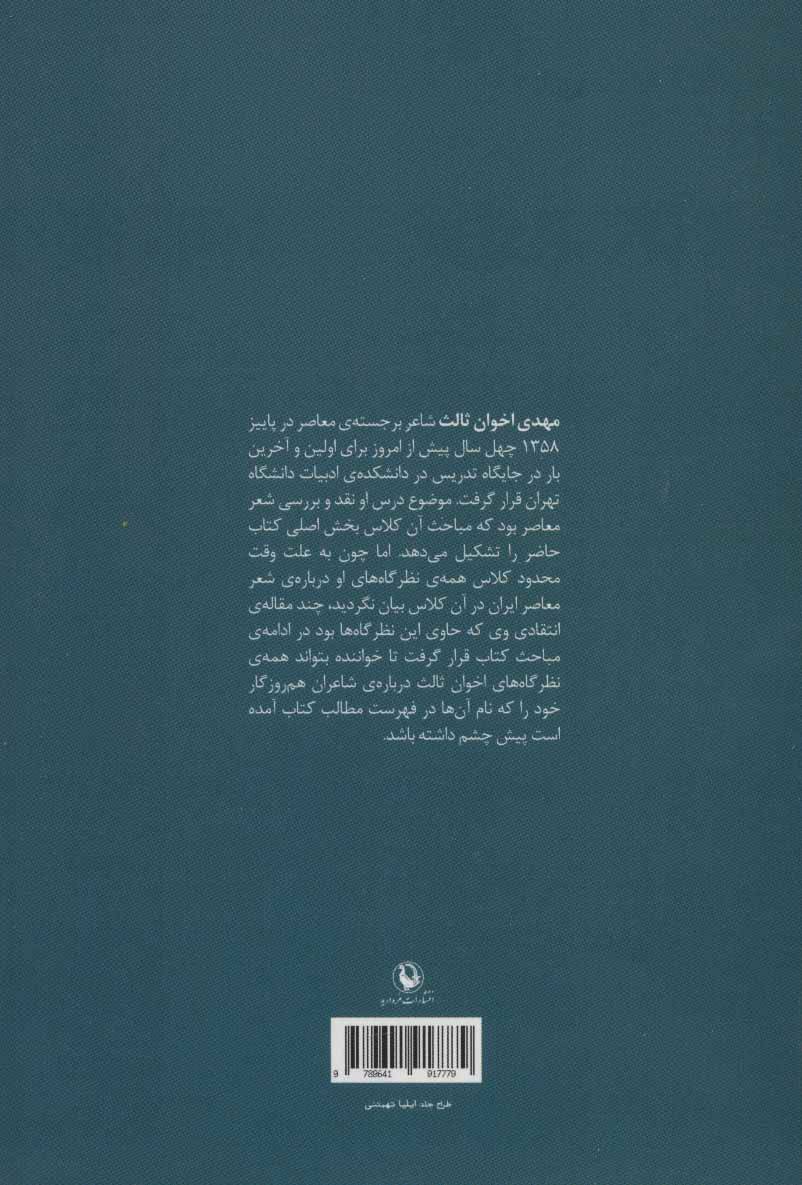 مهدی اخوان ثالث شاعر برجسته‌ی معاصر در پاییز
۱۳۵۸ چهل سال پیش از امروز برای اولین و آخرین
بار در جایگاه تدریس در دانشکده‌ی ادبیات دانشگاه
تهران قرار گرفت. موضوع درس او نقد و بررسی شعر
معاصر بود که مباحث آن کلاس بخش اصلی کتاب
حاضر را تشکیل می‌دهد. اما چون به علت وقت
محدود کلاس همه‌ی نظرگاه‌های او درباره‌ی شعر
معاصر ایران در آن کلاس بیان نگردید، چند مقاله‌ی
انتقادی وی که حاوی این نظرگاه‌ها بود در ادامه‌ی
مباحث کتاب قرار گرفت تا خواننده بتواند همه‌ی
نظرگاه‌های اخوان ثالث درباره‌ی شاعران هم‌روزگار
خود را که نام آن‌ها در فهرست مطالب کتاب آمده
است پیش چشم داشته باشد.
انتشارات مروارید
9 789641 917779
طراح جلد: ایلیا تهمتنی